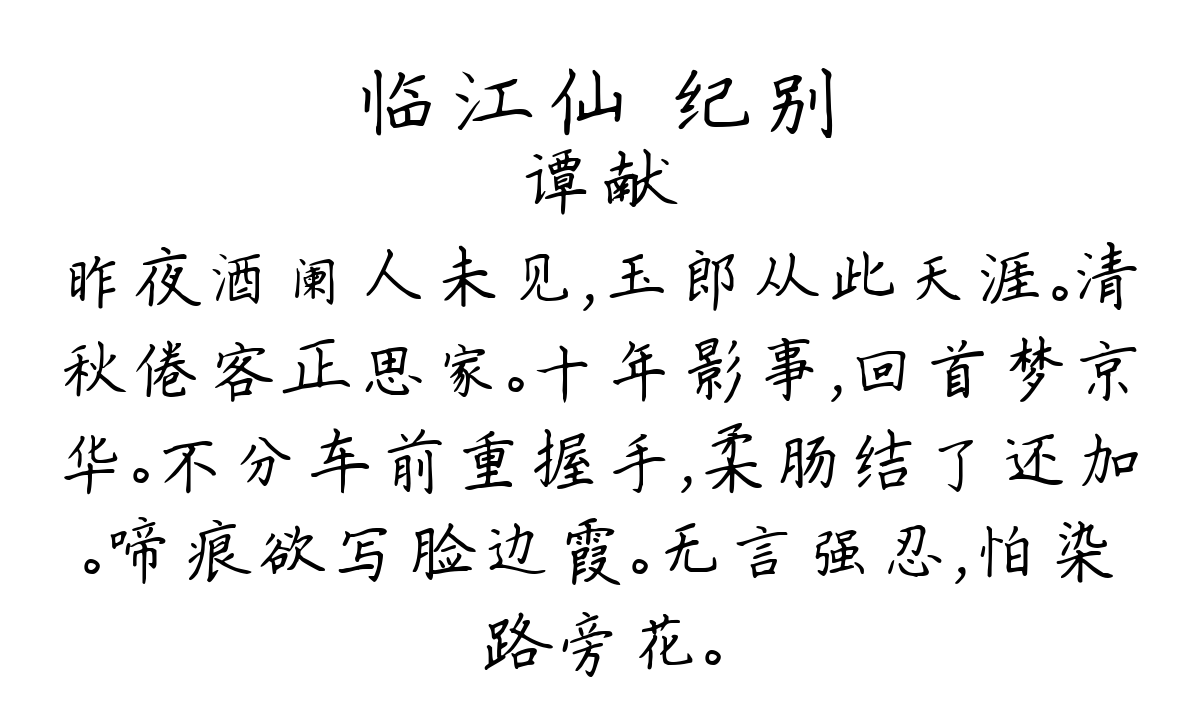 临江仙 纪别
谭献
昨夜酒阑人未见,玉郎从此天涯。清
秋倦客正思家。十年影事,回首梦京
华。不分车前重握手,柔肠结了还加
。啼痕欲写脸边霞。无言强忍,怕染
路旁花。